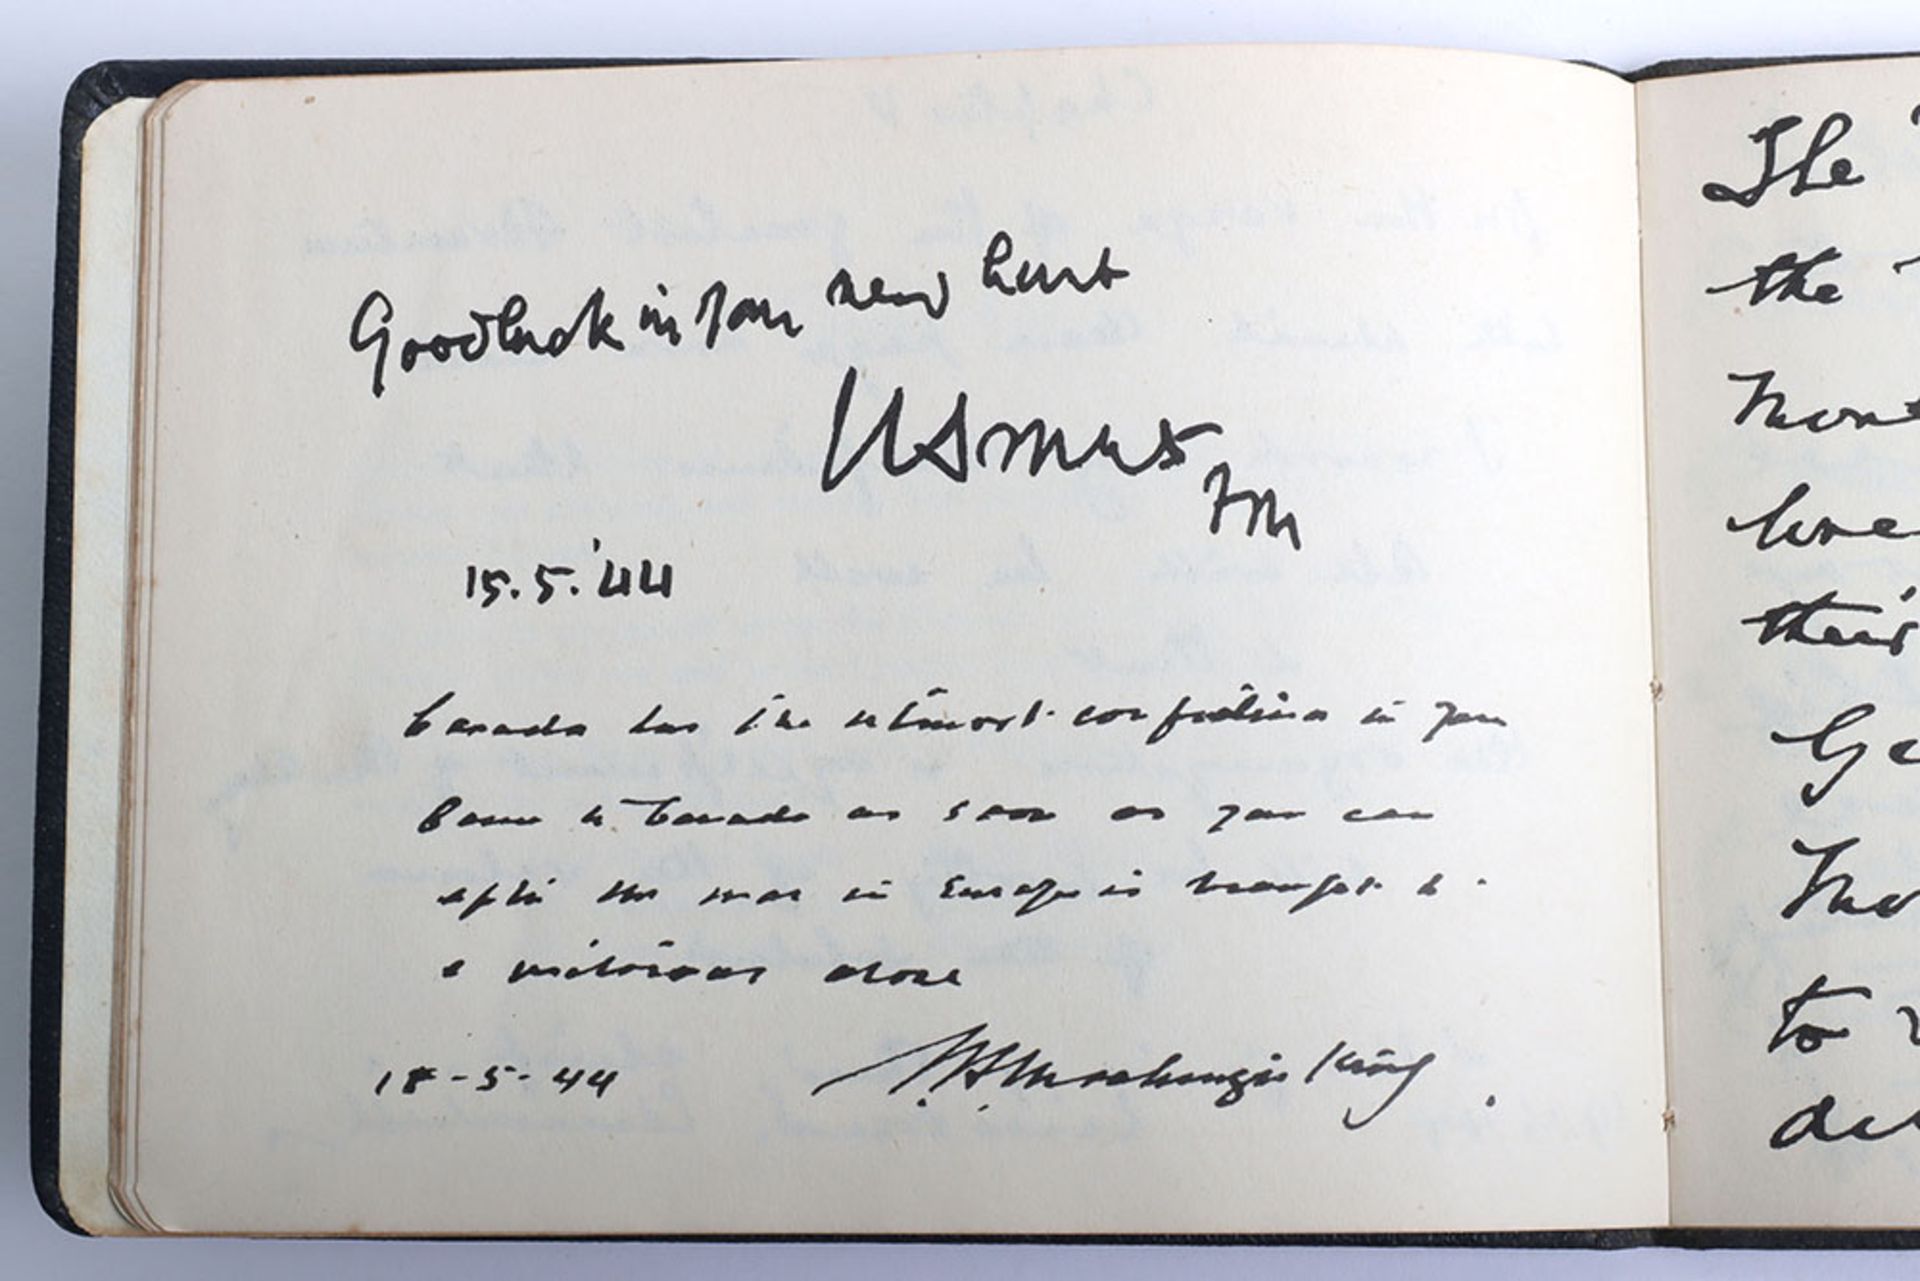 Good luck in your new hunt
JCSmuts
fm
15.5.'44
Canada has the utmost confidence in you
Come to Canada as soon as you can
after the war in Europe is brought to
a victorious close
18-5-44 W L Mackenzie King
The
the
their
to